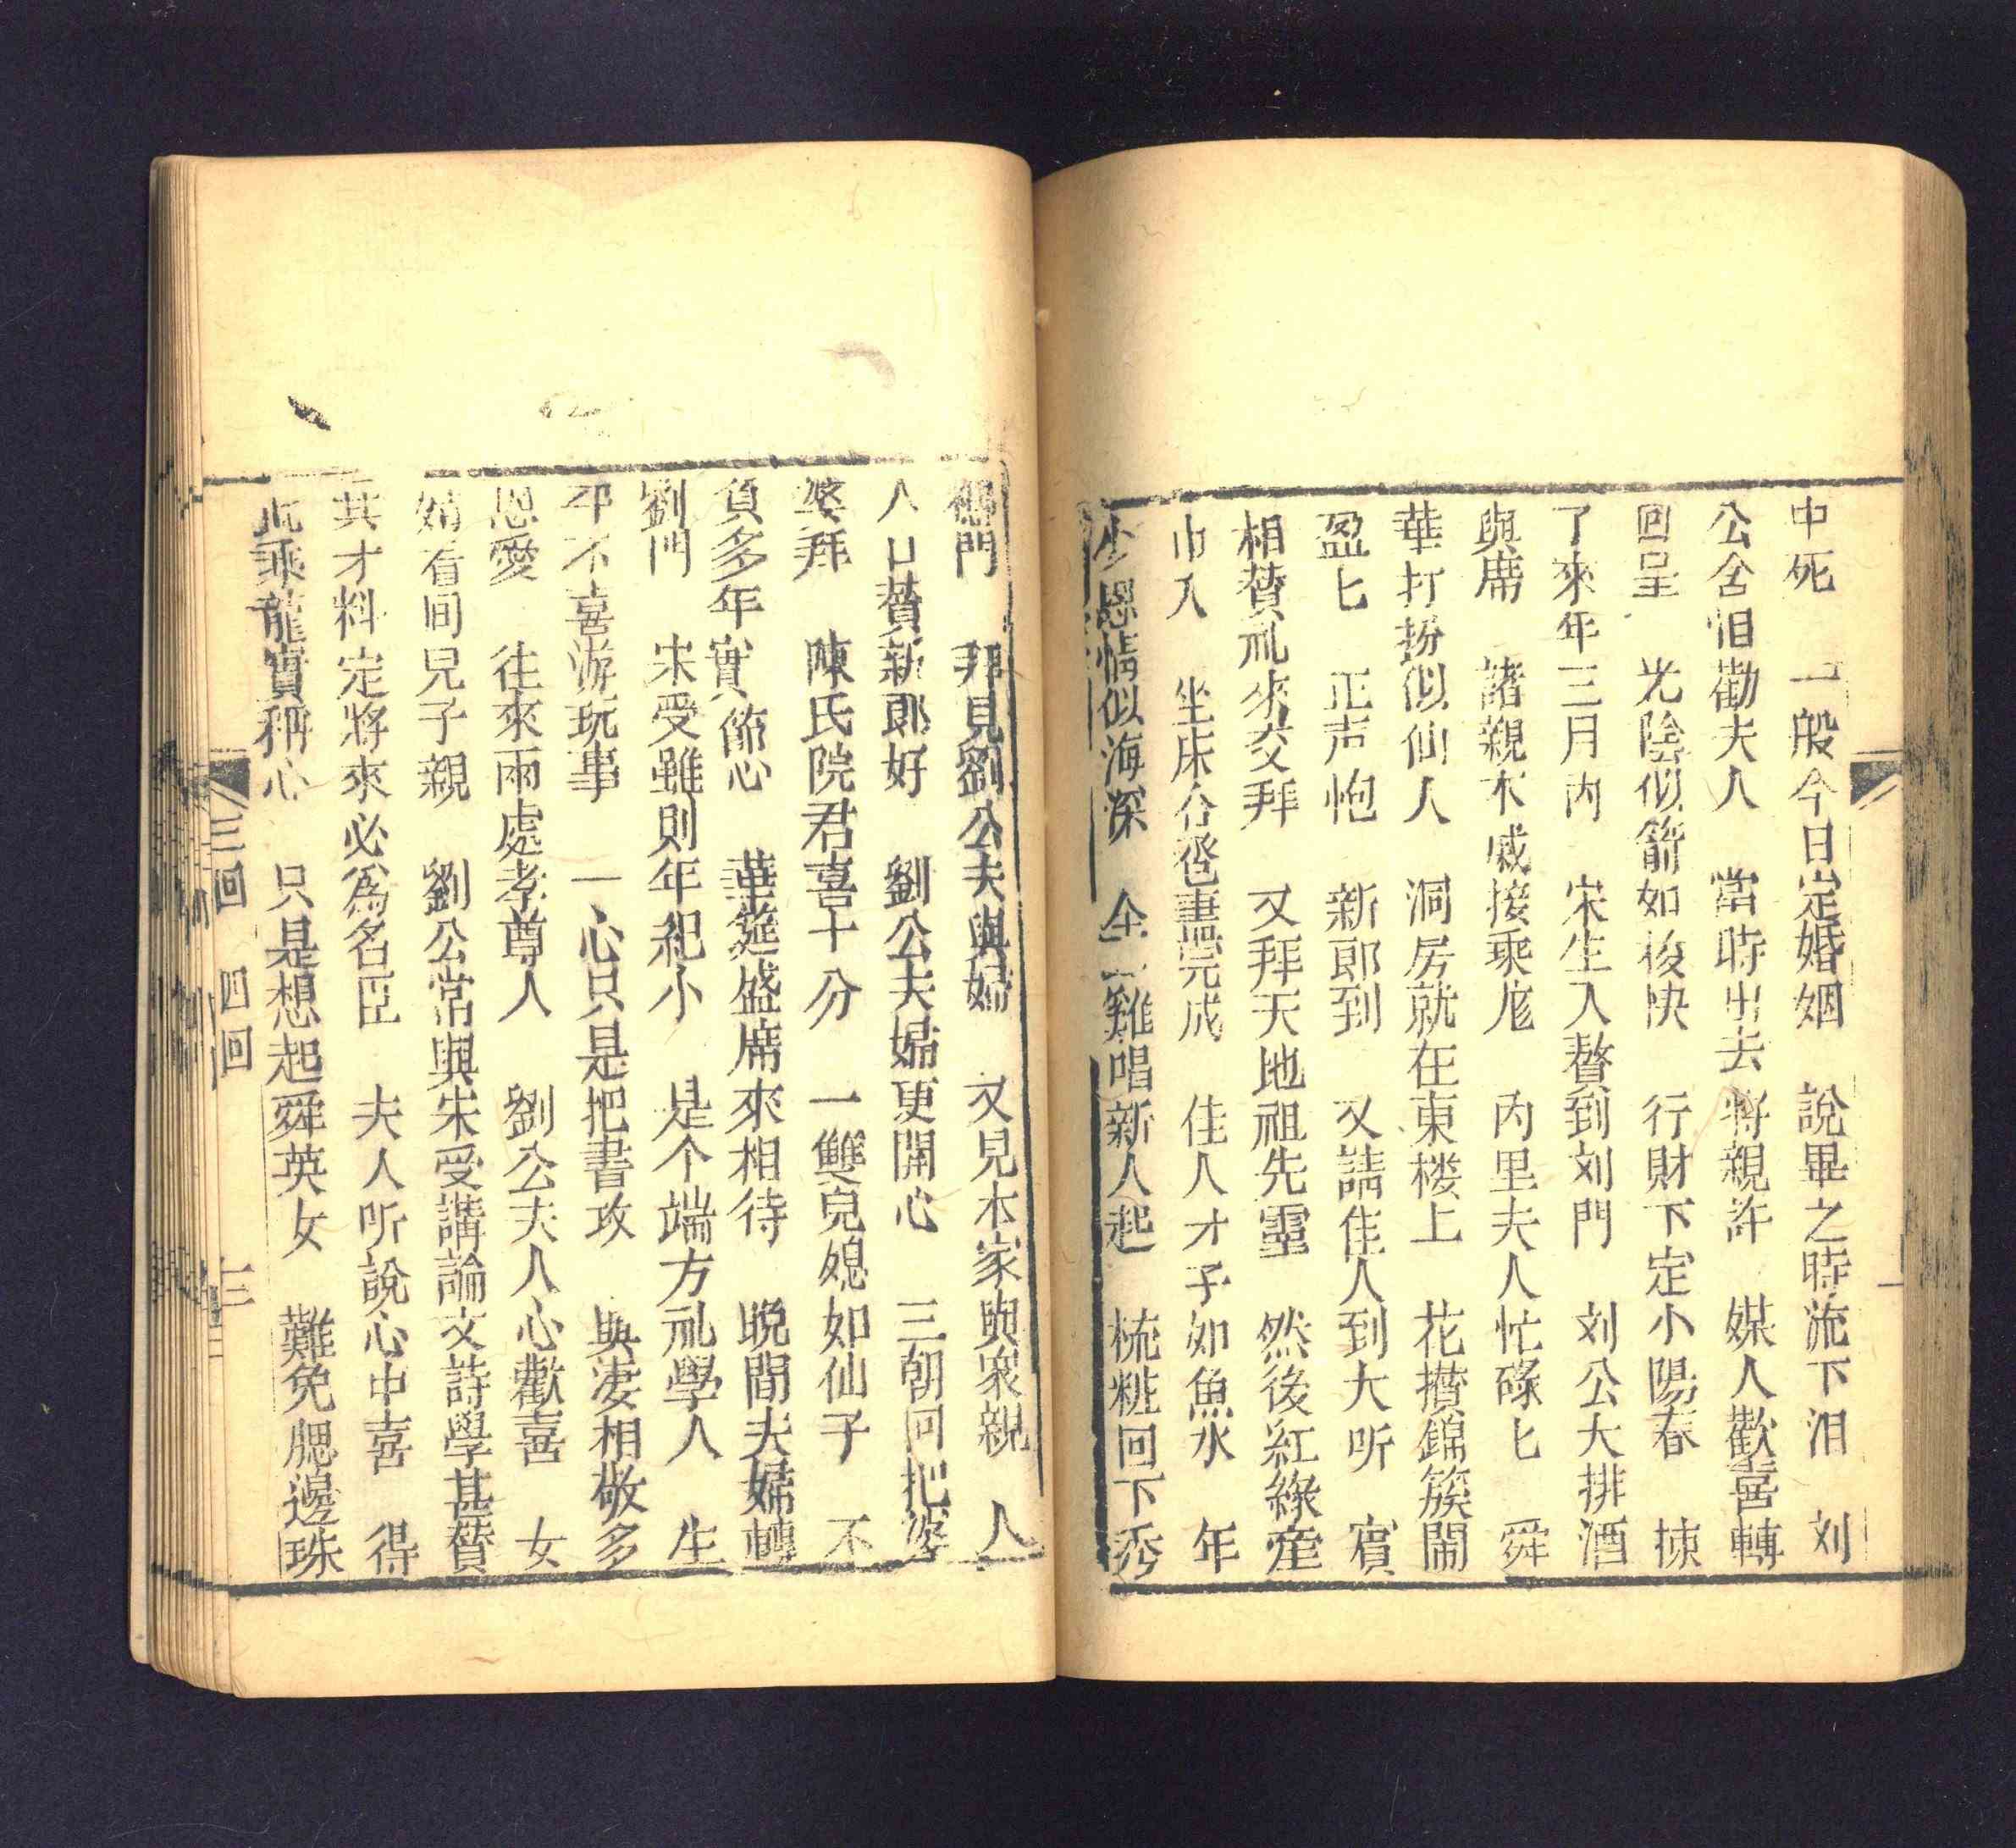 中死　一般今日定婚姻　說畢之時流下泪　刘
公含泪勸夫人　當時出去将親許　媒人歡喜轉
回呈　光陰似箭如梭快　行財下定小陽春　揀
了來年三月內　宋生入贅到刘門　刘公大排酒
與席　諸親木戚接乘尨　內里夫人忙碌匕　舜
華打扮似仙人　洞房就在東楼上　花攅錦簇鬧
盈匕　正声炮　新郎到　又請佳人到大听　賓
相贊礼來交拜　又拜天地祖先靈　然後紅綠牽
巾入　坐床合卺盡完成　佳人才子如魚水　年
少恩情似海深　金雞唱新人起　梳粧回下秀
　門　拜見劉公夫與婦　又見本家與衆親　人
人口贊新郎好　劉公夫婦更開心　三朝回把婆
婆拜　陳氏院君喜十分　一雙兒媳如仙子　不
負多年實節心　華筵盛席來相待　晚間夫婦轉
劉門　宋受雖則年紀小　是个端方礼學人　生
平不喜游玩事　一心只是把書攻　與淒相敬多
恩愛　往來兩處孝尊人　劉公夫人心歡喜　女
婿看同兒子親　劉公常與朱受講論文詩學甚贊
其才料定將來必為名臣　夫人听說心中喜　得
此乘龍實稱心　只是想起舜英女　難免腮邊珠
三回　四回　三